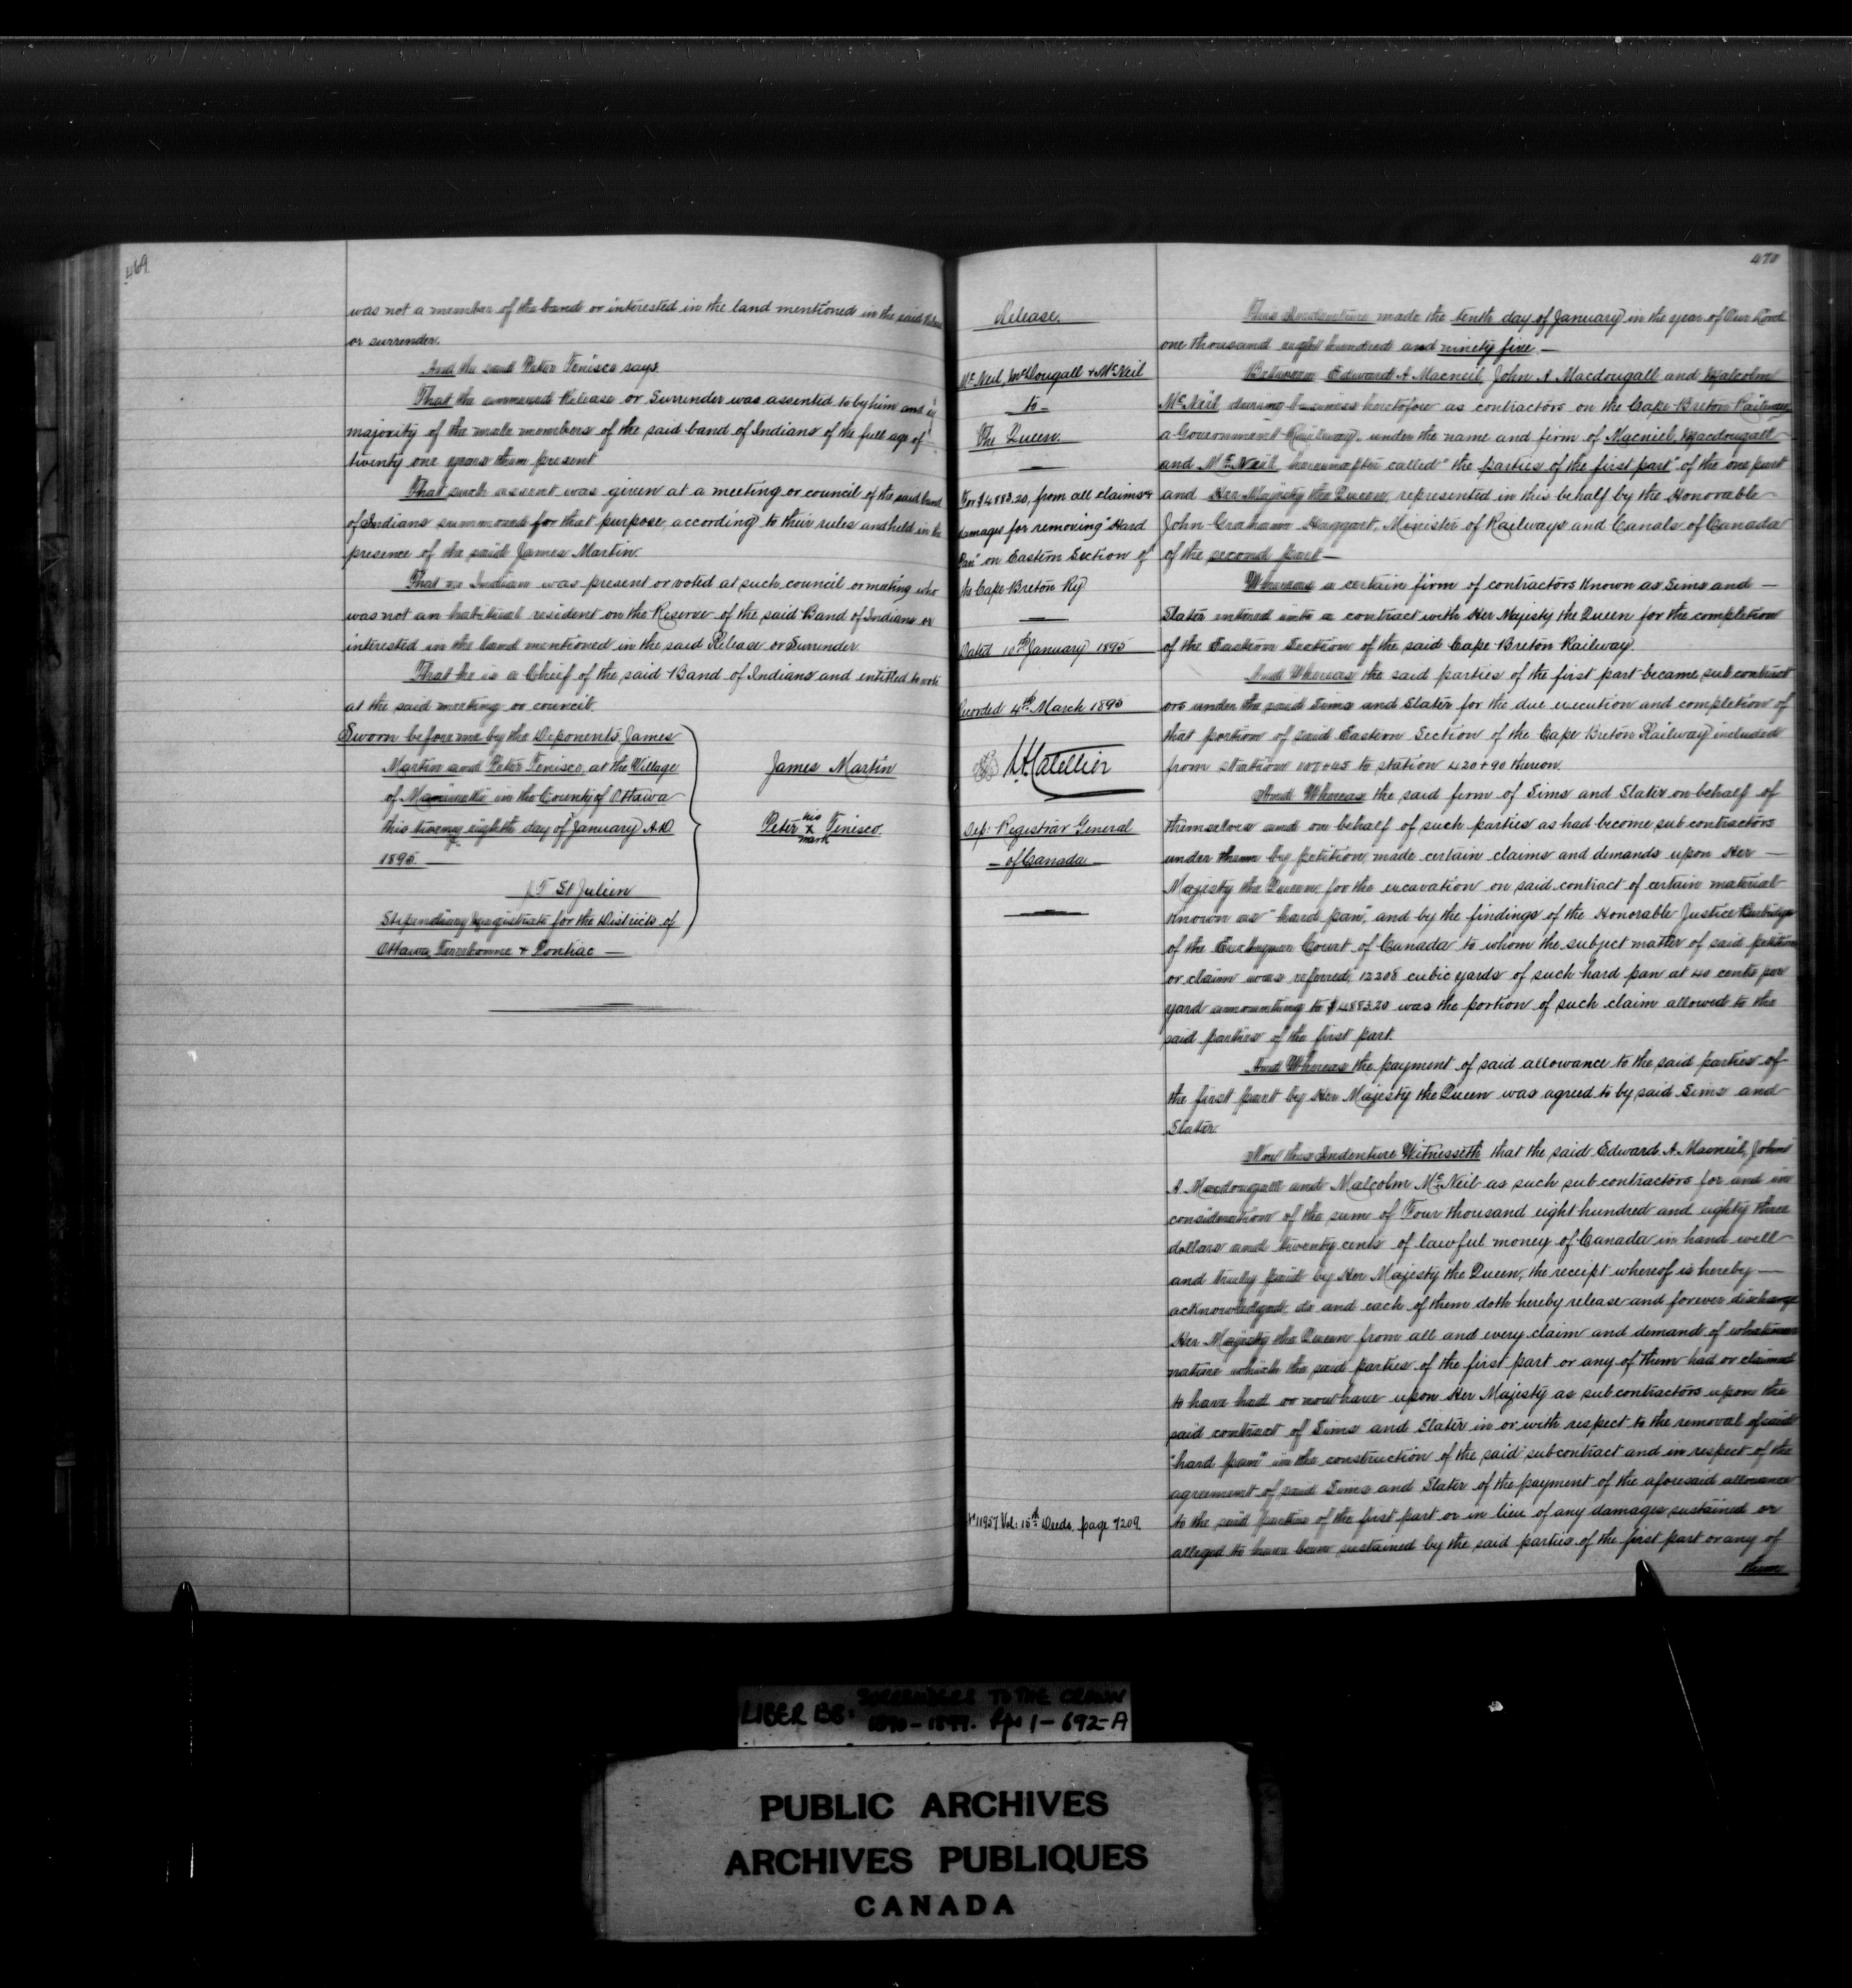 469
was not a member of the band or interested in the land mentioned in the said Release
or surrender.
And the said Peter Tenisco says
That the annexed Release or Surrender was assented to by him and a
majority of the male members of the said band of Indians of the full age of
twenty one years then present
That such assent was given at a meeting or council of the said band
of Indians summoned for that purpose, according to their rules and held in the
presence of the said James Martin.
That no Indian was present or voted at such council or meeting who
was not an habitual resident on the Reserve of the said Band of Indians or
interested in the land mentioned in the said Release or Surrender.
That he is a Chief of the said Band of Indians and entitled to vote
at the said meeting or council.
Sworn before me by the Deponents, James
Martin and Peter Tenisco, at the Village
of Maniwaki in the County of Ottawa
this twenty eighth day of January A.D
1895 —
James Martin
his
Peter x Tenisco
mark
St Julien
Stipendiary Magistrate for the Districts of
Ottawa Terrebonne & Pontiac —
470
Release.
McNeil, McDougall & McNeil
– to –
The Queen.
For $4883.20, from all claims &
damages for removing "Hard
Pan" on Eastern Section of
the Cape Breton Ry
Dated 10th January 1895
Recorded 4th March 1895
Dep: Registrar General
– of Canada –
11957 Vol: 15th Deeds, page 7209.
This Indenture made the tenth day of January in the year of Our Lord
one thousand eight hundred and ninety five —
Between Edward A Macneil, John A. Macdougall and Malcolm
McNeil, during business heretofore as contractors on the Cape Breton Railway
a Government Railway, under the name and firm of Macneil, Macdougall
and McNeil hereinafter called "the parties of the first part" of the one part
and Her Majesty the Queen, represented in this behalf by the Honorable
John Graham Haggart, Minister of Railways and Canals of Canada
of the second part —
Whereas a certain firm of contractors known as Sims and —
Slater entered into a contract with Her Majesty the Queen for the completion
of the Eastern Section of the said Cape Breton Railway.
And Whereas the said parties of the first part became sub contract
ors under the said Sims and Slater for the due execution and completion of
that portion of said Eastern Section of the Cape Breton Railway included
from station 107+45 to station 420+90 thereon.
And Whereas the said firm of Sims and Slater on behalf of
themselves and on behalf of such parties as had become sub contractors
under them by petition, made certain claims and demands upon Her —
Majesty the Queen, for the excavation on said contract of certain material
known as "hard pan", and by the findings of the Honorable Justice Burbidge
of the Exchequer Court of Canada to whom the subject matter of said petition
or claim was referred, 12208 cubic yards of such hard pan at 40 cents per
yard amounting to $4883.20 was the portion of such claim allowed to the
said parties of the first part.
And Whereas the payment of said allowance to the said parties of
the first part by Her Majesty the Queen was agreed to by said Sims and
Slater.
Now this Indenture Witnesseth that the said Edward A. Macneil, John
A Macdougall and Malcolm McNeil as such sub contractors for and in
consideration of the sum of Four thousand eight hundred and eighty three
dollars and twenty cents of lawful money of Canada in hand well
and truly paid by Her Majesty the Queen, the receipt whereof is hereby —
acknowledged, do and each of them doth hereby release and forever discharge
Her Majesty the Queen from all and every claim and demand of whatsoever
nature which the said parties of the first part or any of them had or claimed
to have had or now have upon Her Majesty as subcontractors upon the
said contract of Sims and Slater in or with respect to the removal of said
"hard pan" in the construction of the said subcontract and in respect of the
agreement of said Sims and Slater of the payment of the aforesaid allowance
to the said parties of the first part or in lieu of any damages sustained or
alleged to have been sustained by the said parties of the first part or any of
them
LIBER BB: SURRENDERS TO THE CROWN
1890–1897. Pps 1–692-A
PUBLIC ARCHIVES
ARCHIVES PUBLIQUES
CANADA